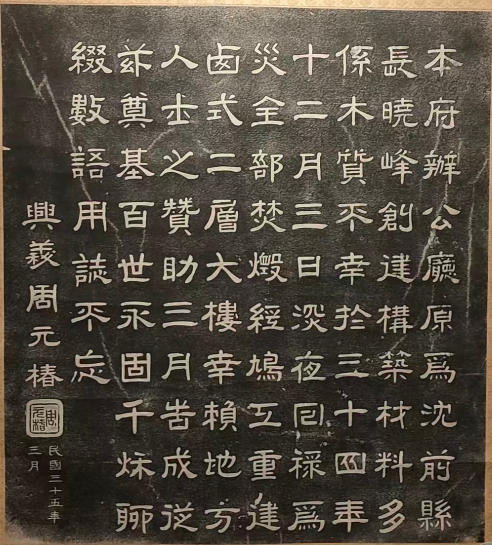 本府辦公廳原爲沈前縣
長曉峰創建構築材料多
係木質不幸於三十四年
十二月三日深夜回祿爲
災全部焚燬經鳩工重建
卥式二層大樓幸賴地方
人士之贊助三月告成從
茲奠基百世永固千秌聊
綴數語用誌不忘
興義周元椿
周元椿
民國三十五年
三月